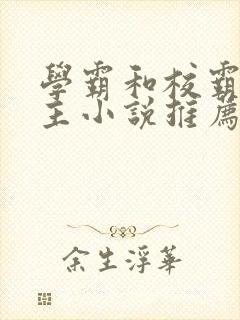 學霸和校霸
主小說推薦
余生浮華